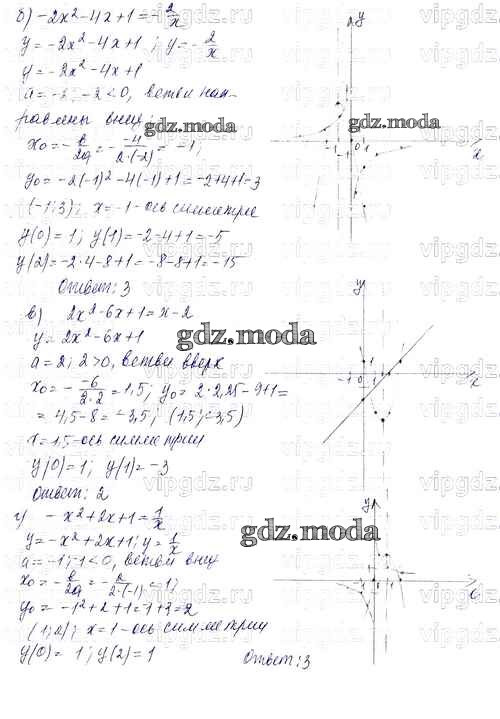 б) -2x²-4x+1=-2/x
y=-2x²-4x+1; y=-2/x
y=-2x²-4x+1
a=-2, -2<0, ветви нап-
равлены вниз;
gdz.moda
x₀=-b/2a=-(-4)/(2·(-2))=-1;
y₀=-2(-1)²-4(-1)+1=-2+4+1=3
(-1;3); x=-1-ось симметрие
y(0)=1; y(1)=-2-4+1=-5
y(2)=-2·4-8+1=-8-8+1=-15
Ответ: 3
в) 2x²-6x+1=x-2
y=2x²-6x+1
gdz.moda
a=2; 2>0, ветви вверх
x₀=-(-6)/(2·2)=1,5; y₀=2·2,25-9+1=
=4,5-8=-3,5; (1,5;-3,5)
x=1,5-ось симметрии
y(0)=1; y(1)=-3
Ответ: 2
г) -x²+2x+1=1/x
y=-x²+2x+1; y=1/x
gdz.moda
a=-1; -1<0, ветви вниз
x₀=-b/2a=-2/(2·(-1))=1;
y₀=-1²+2+1=-1+3=2
(1;2); x=1-ось симметрии
y(0)=1; y(2)=1
Ответ: 3
y
1
-1 0 1
x
gdz.moda
y
1
-1 0 1
x
y
vipgdz.ru